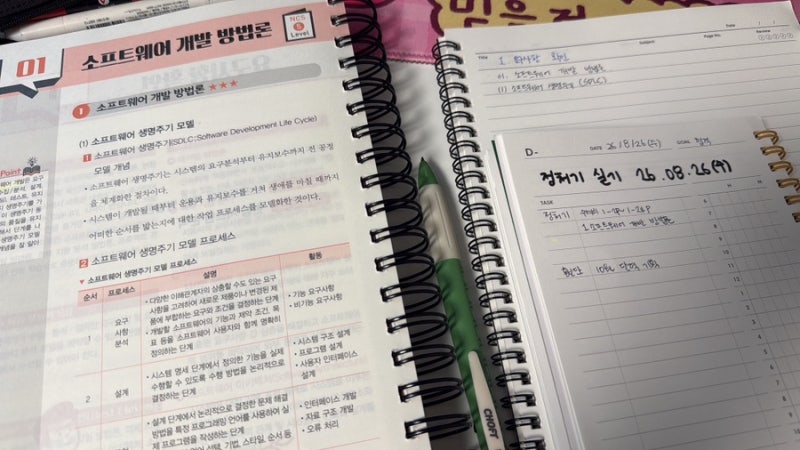 01 소프트웨어 개발 방법론
NCS
5
Level
1 소프트웨어 개발 방법론 ★★★
(1) 소프트웨어 생명주기 모델
1 소프트웨어 생명주기(SDLC;Software Development Life Cycle)
모델 개념
• 소프트웨어 생명주기는 시스템의 요구분석부터 유지보수까지 전 공정
을 체계화한 절차이다.
• 시스템이 개발될 때부터 운용과 유지보수를 거쳐 생애를 마칠 때까지
어떠한 순서를 밟는지에 대한 작업 프로세스를 모델화한 것이다.
2 소프트웨어 생명주기 모델 프로세스
▼ 소프트웨어 생명주기 모델 프로세스
순서 프로세스 설명 활동
1 요구
사항
분석
• 다양한 이해관계자의 상충할 수도 있는 요구
사항을 고려하여 새로운 제품이나 변경된 제
품에 부합하는 요구와 조건을 결정하는 단계
• 개발할 소프트웨어의 기능과 제약 조건, 목
표 등을 소프트웨어 사용자와 함께 명확히
정의하는 단계
• 기능 요구사항
• 비기능 요구사항
2 설계
• 시스템 명세 단계에서 정의한 기능을 실제
수행할 수 있도록 수행 방법을 논리적으로
결정하는 단계
• 시스템 구조 설계
• 프로그램 설계
• 사용자 인터페이스
설계
• 설계 단계에서 논리적으로 결정한 문제 해결
방법을 특정 프로그래밍 언어를 사용하여 실
제 프로그램을 작성하는 단계
언어 선택, 기법, 스타일, 순서 등
• 인터페이스 개발
• 자료 구조 개발
• 오류 처리
Point
CHOFT
Title
Subject
Page No.
Date
Review
I. 화면 확인
01. 소프트웨어 개발 방법론
(1) 소프트웨어 생명주기 (SDLC)
D-
DATE 26/8/26(수)
GOAL
정처기 실기 26.08.26(수)
TASK
정처기
1.소프트웨어 개발 방법론